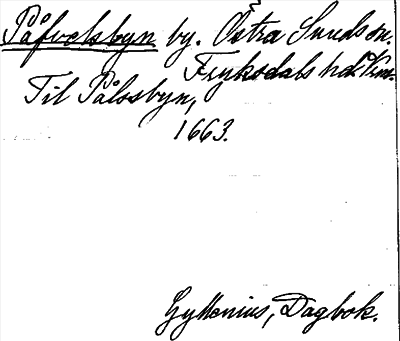 Påfvelsbyn by. Östra Sunds sn.
Fryksdals hd. Vrm.
Til Pålssbyn,
1663.
Gyllenius, Dagbok.